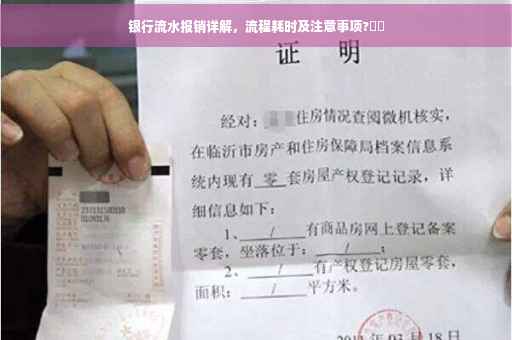 银行流水报销详解，流程耗时及注意事项?
证 明
经对：住房情况查阅微机核实，
在临沂市房产和住房保障局档案信息系
统内现有 零 套房屋产权登记记录，详
细信息如下：
1、 / 有商品房网上登记备案
零套，坐落位于： / ；
2、 / 有产权登记房屋零套，
面积： / 平方米。
03月18日